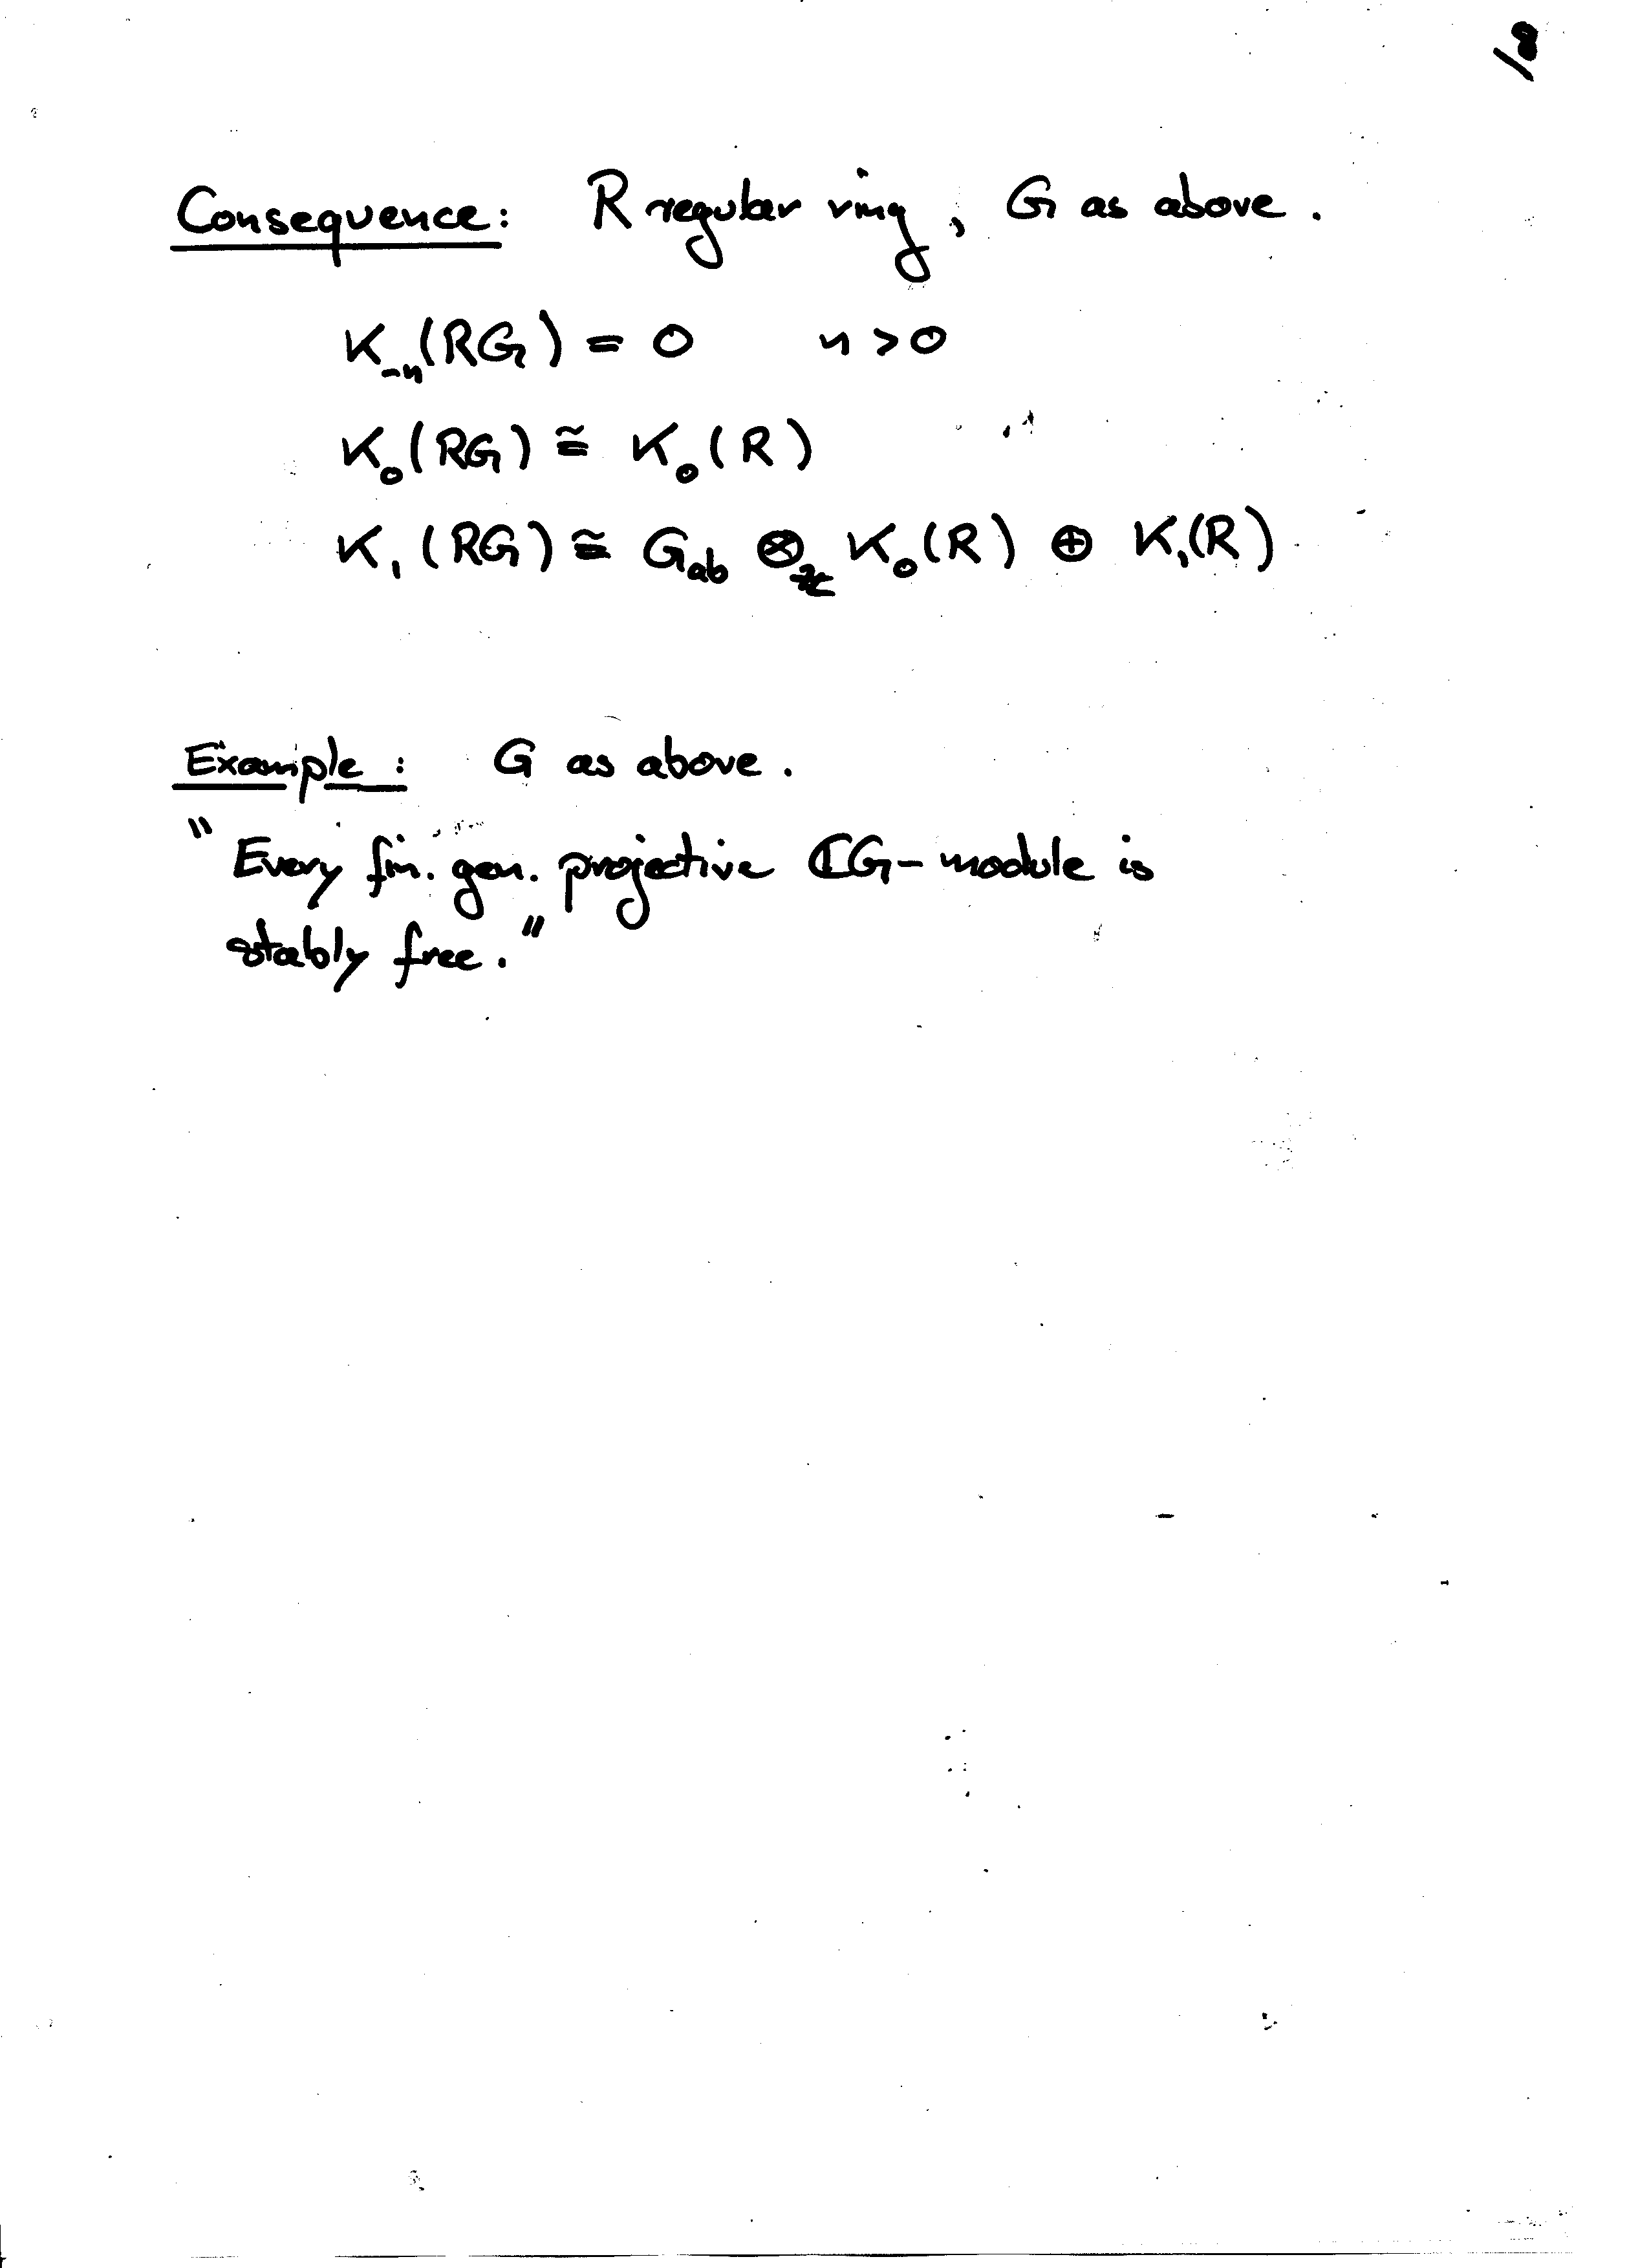 18
Consequence: R regular ring, G as above.
K₋ₙ(RG) = 0 n > 0
K₀(RG) ≅ K₀(R)
K₁(RG) ≅ G_ab ⊗_ℤ K₀(R) ⊕ K₁(R)
Example: G as above.
"Every fin. gen. projective ℂG-module is
stably free."